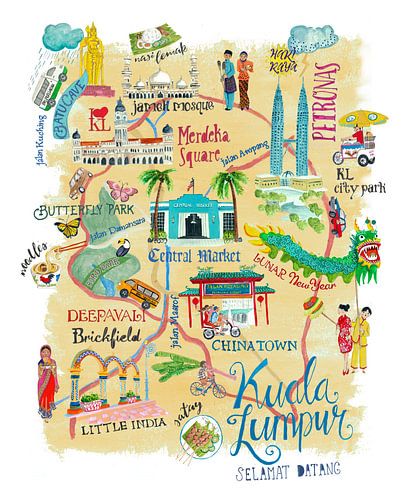 nasi lemak
HARI
RAYA
BATU CAVE
I ♥
KL
Jameh mosque
PETRONAS
Jalan Kuching
Merdeka
Square
Jalan Ampang
KL
city park
BUTTERFLY PARK
Jalan Damansara
CENTRAL MARKET
noodles
Central Market
LUNAR New YEAR
DEEPAVALI
Brickfield
Jalan Maarof
CHINATOWN
LITTLE INDIA
satay
Kuala
Lumpur
SELAMAT DATANG